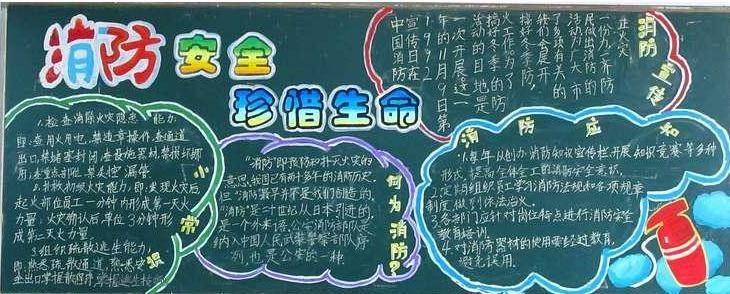 消防安全
珍惜生命
1.检查消除火灾隐患能力
即:查用火用电,禁违章操作,查通道
出口,禁堵塞封闭,查设施器材,禁损坏挪
用,查重点部位,禁失控漏管
2.扑救初级火灾能力,即:发现火灾后
起火部位员工一分钟内形成第一灭火
力量,火灾确认后单位三分钟形
成第二灭火力量.
3.组织疏散逃生能力,
即:熟悉疏散通道,熟悉安
全出口掌握疏散程序,掌握逃生技能
小常
"消防"即预防和扑灭火灾的
意思,我国已有两千多年的消防历史,
但"消防"最早不是我们创造的,
"消防"是二十世纪从日本引进的,
是一个外来语,公安消防部队是
纳入中国人民武装警察部队序
列,也是公安的一种.
何为消防?
消防宣传
一份力,齐防
展做出消防的
活动,为广大市
了多项有关的
我们会展开
搞好冬季防,
火工作,为了
活动的目的是
一次开展这一
年的11月9日第
宣传日在1992
中国消防
消防应知
1.每年以创办消防知识宣传栏,开展知识竞赛等多种
形式,提高全体员工的消防安全意识.
2.定期组织员工学习消防法规和各项规章
制度,做到依法治火.
3.各部门应针对岗位特点进行消防安全
教育培训.
4.对消防器材的使用要经过教育,
避免误用.